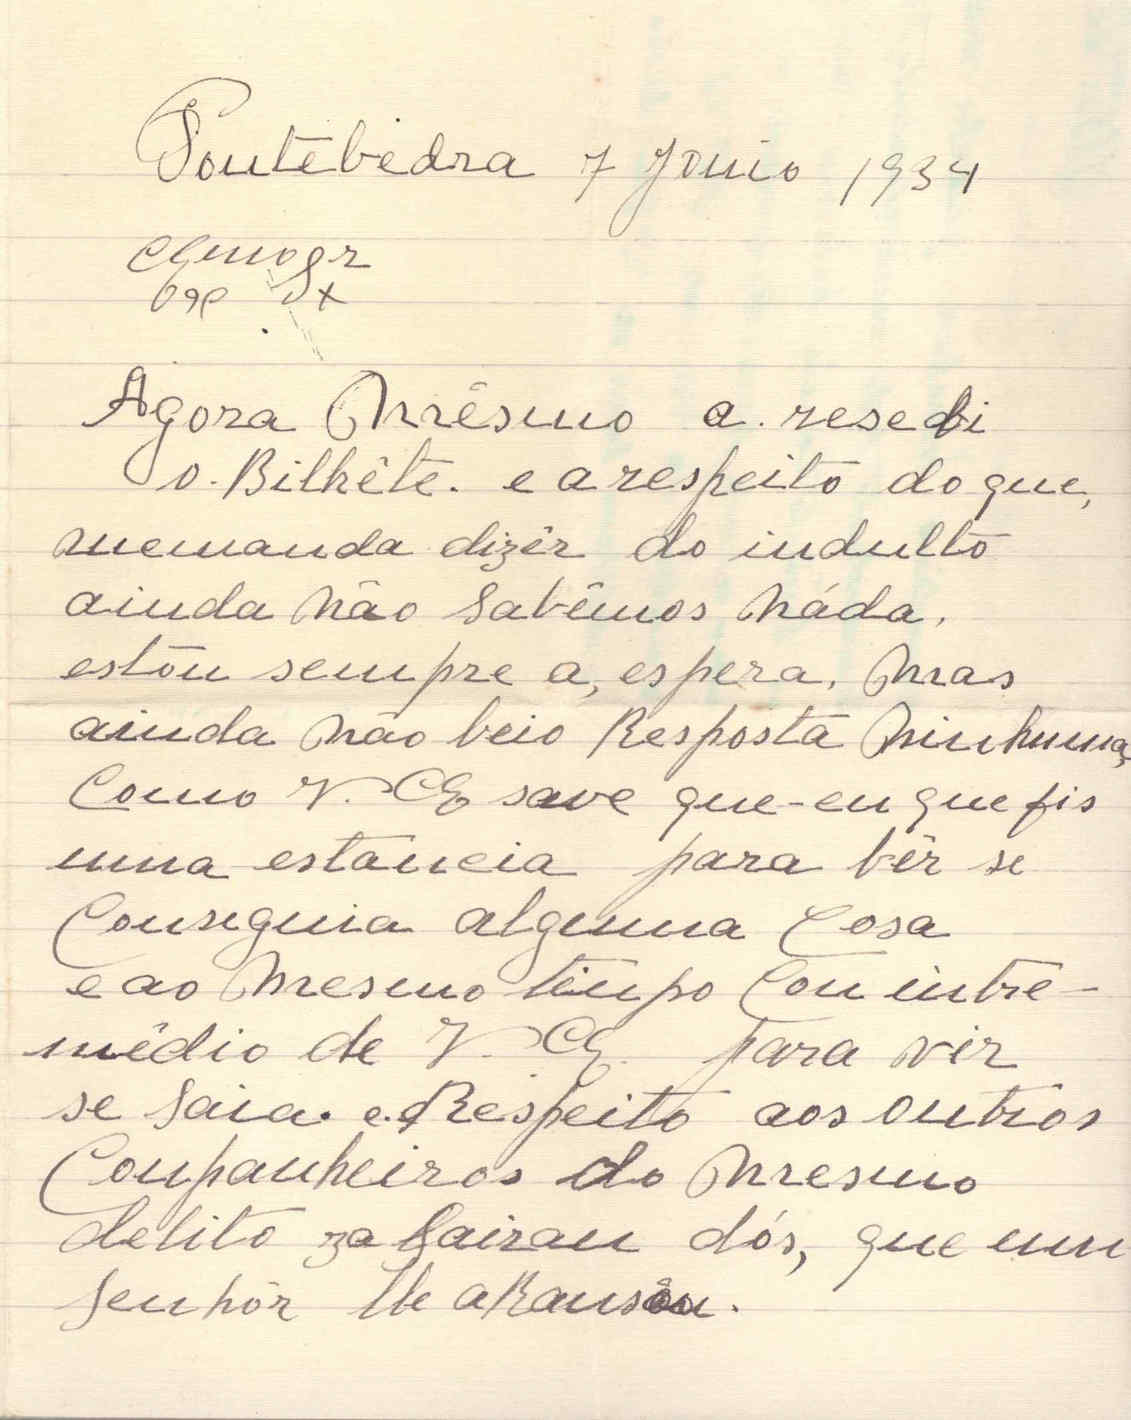 Pontebedra 7 Jonio 1934
Agora Mêsmo a. resebi
o. Bilhête. e a respeito do que,
memanda dizêr do indulto
ainda Não Sabêmos Náda.
estou sempre a, espera. Mas
ainda Não beio Resposta Ninhuma,
Como V. CE save que-eu que fis
uma estancia para bêr se
Conseguia alguma Cosa
e ao Mesmo tempo Con intre-
médio de V. CE. para vêr
se Saia. e Respeito aos outros
Conpanheiros do Mesmo
delito za Sairan dós, que un
Senhôr lhe aRansou.